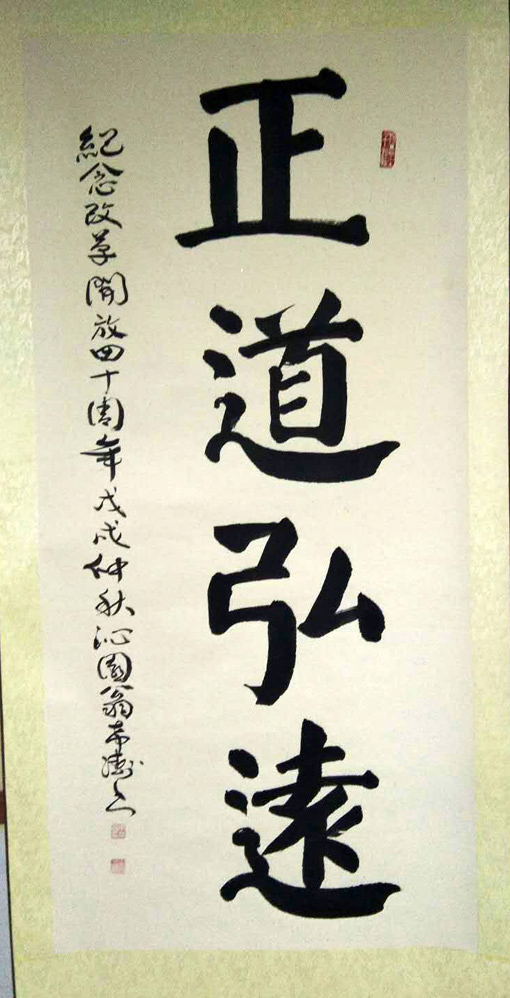 正道弘遠
紀念改革開放四十周年戊戌仲秋沁園翁